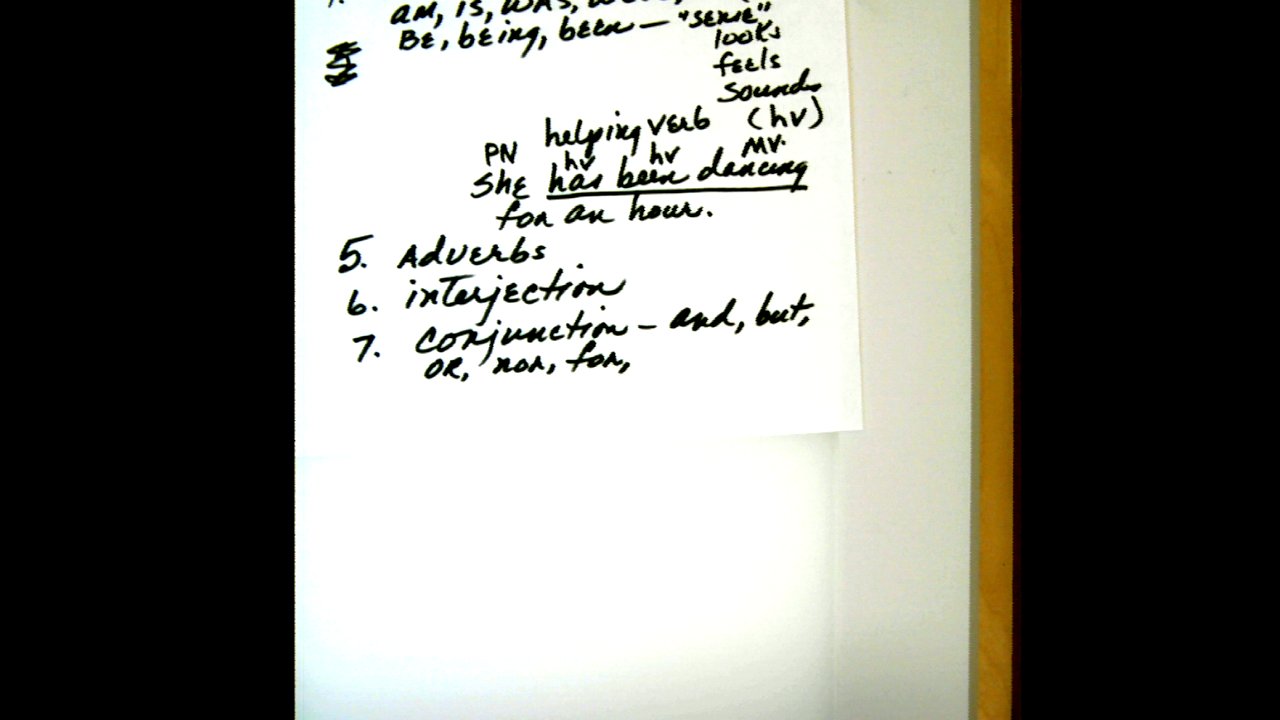 am, is, was,
BE, being, been – "sense"
looks
feels
sounds
helping verb (hv)
PN hv hv MV.
She has been dancing
for an hour.
5. Adverbs
6. interjection
7. conjunction – and, but,
OR, nor, for,